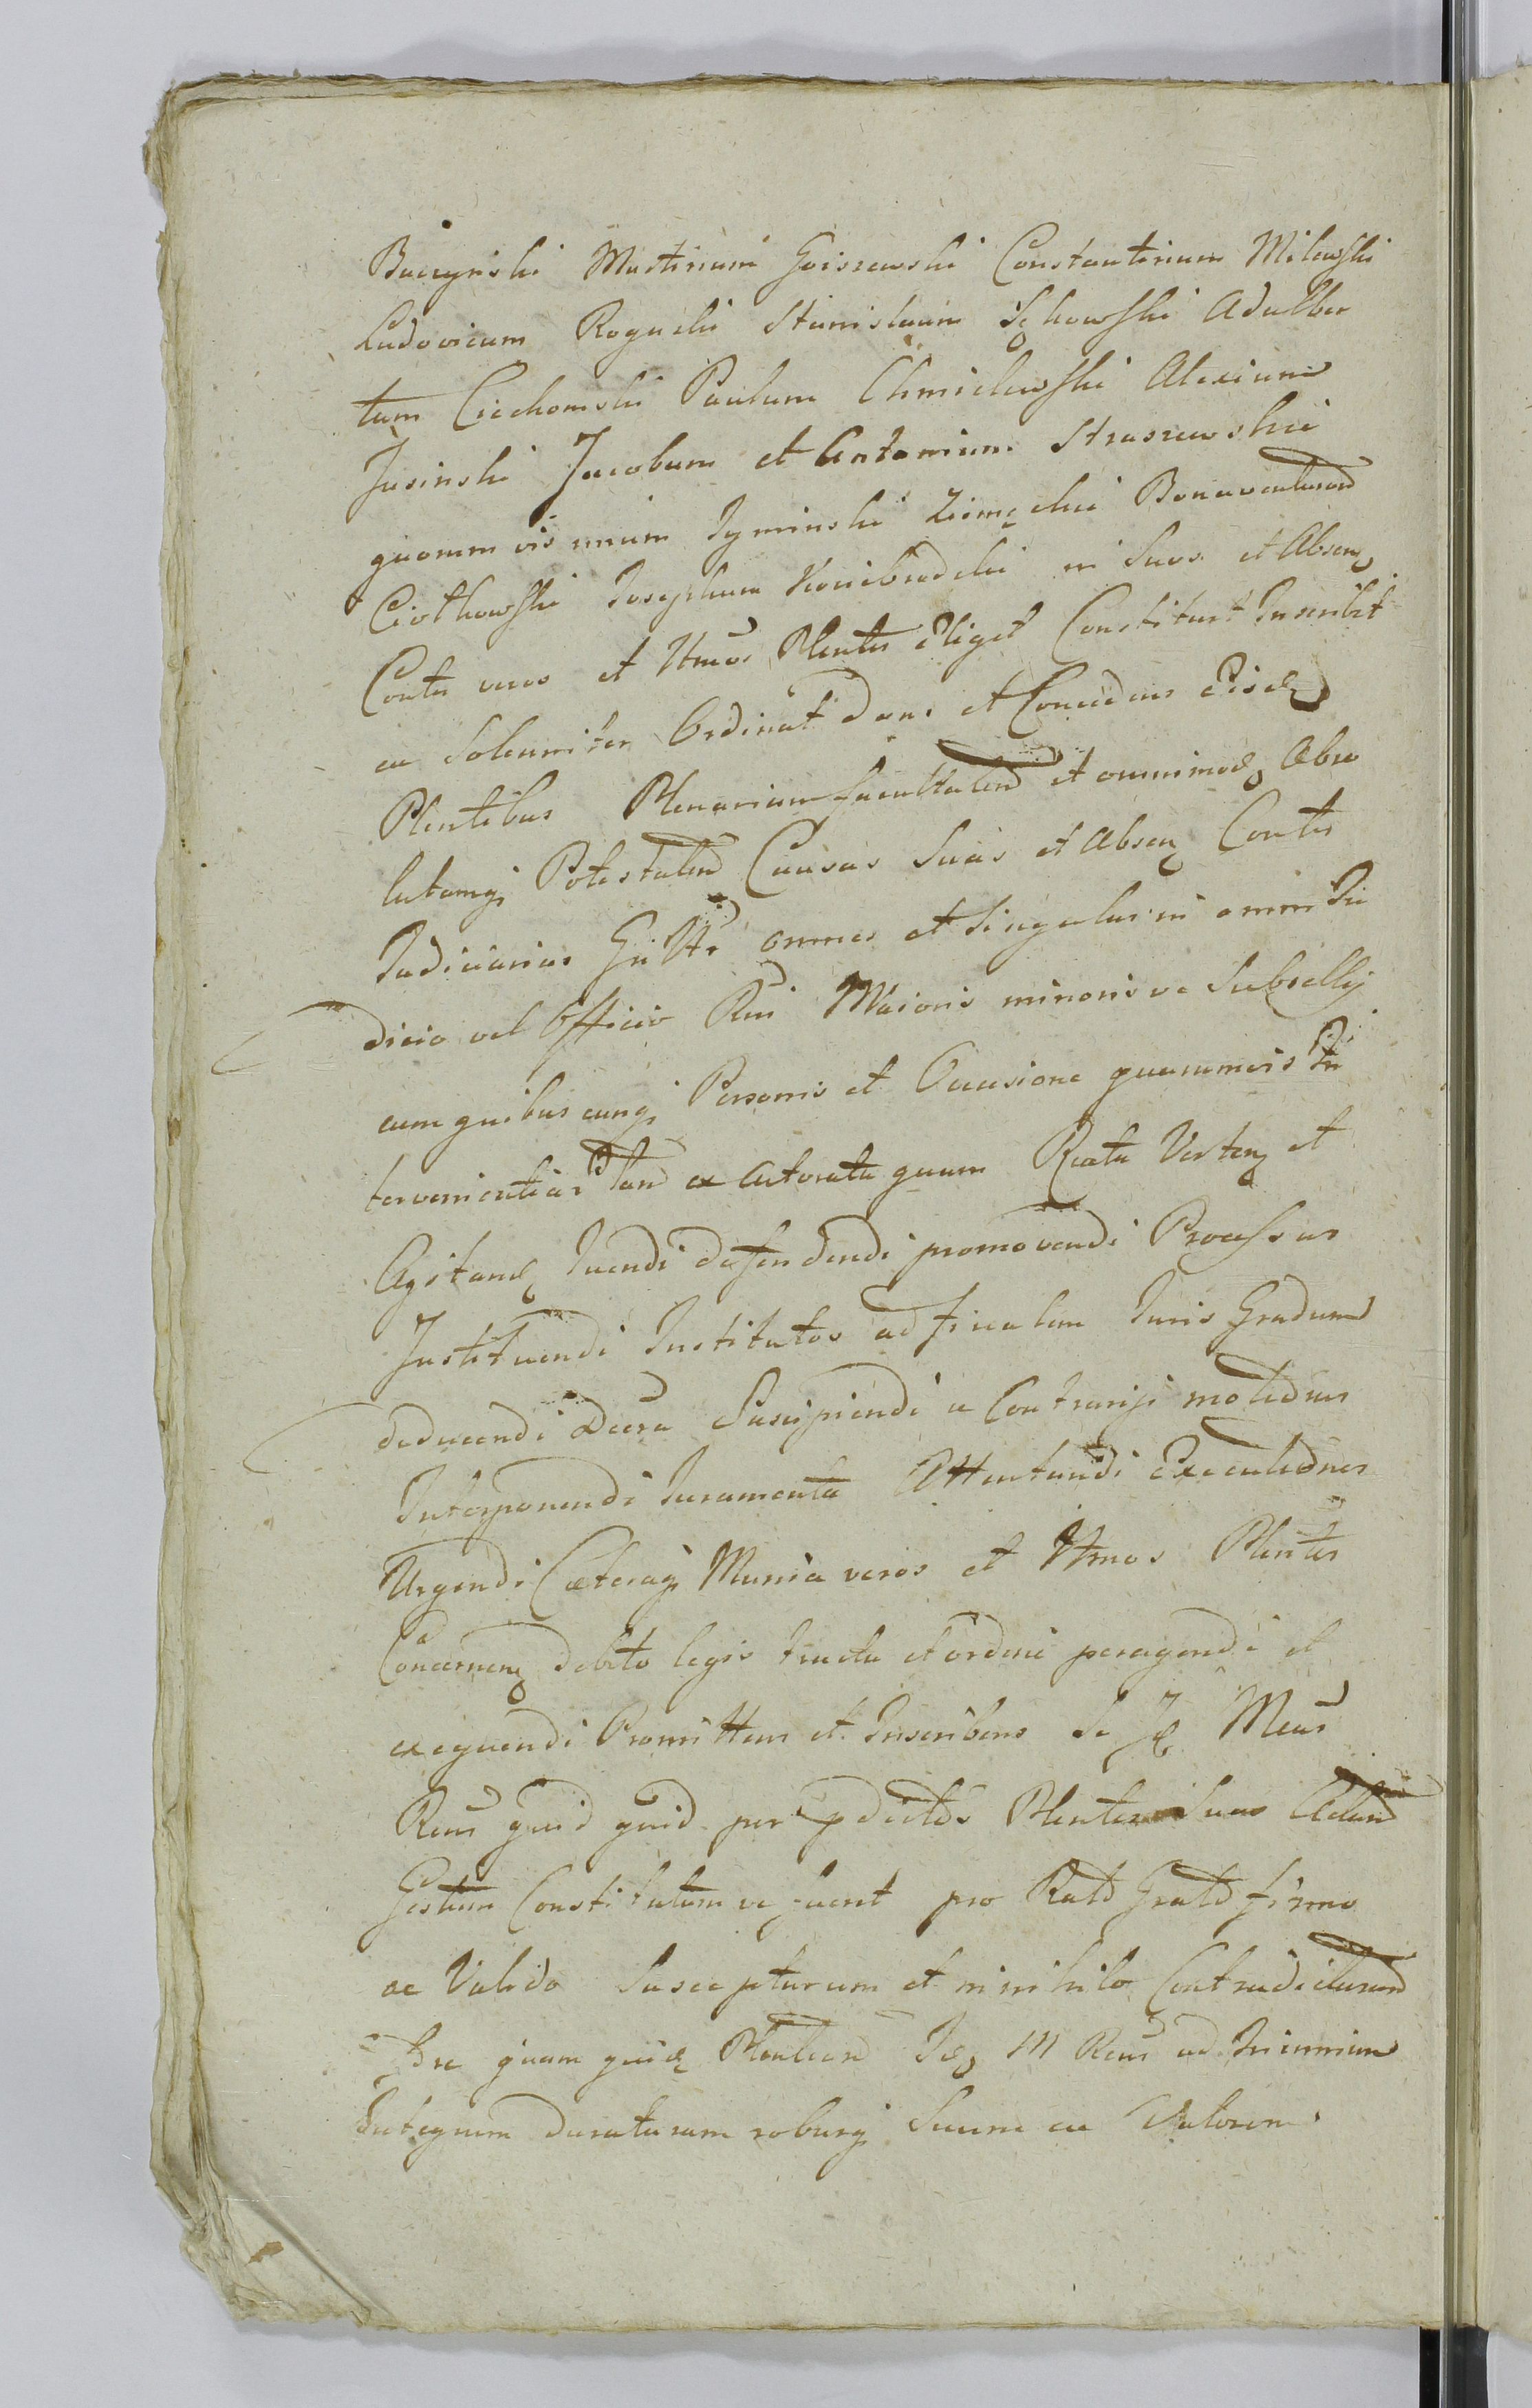 Baczynski Martinum Goiszewski Constantinum Milewski
Ludovicum Rogucki Stanislaum Sękowski Adalber
tum Ciechomski Paulum Chmielewski Alexium
Jasinski Jacobum et Antonium Straszewskie
quorum vis unum Zyminski Ziemęckii Bonaventuram
Ciotkowski Josephum in Suos et Absenz
Contes veros et Ittmos Plentes Eligit Constituit Inscribit
ac Solemniter Ordinat dans et Concedens Eisdz
Plentibus Plenariam facultatem et omnimodz Abso
lutamqz Potestatem Causas Suas et Absenz Contes
Judiciarias omnes et Singulas in omni Ju
dicio vel Officio Rni Maioris minorisve Subsellij
cum quibuscunqz Personis et Occasione quarumvis In
tervenientias Tam ex Actoratu quam Reatu Vertenz et
Agitandz Tuendi defendendi promovendi Processus
Instituendi Institutos ad finalem Juris Gradum
deducendi Decra Suscipiendi a Contrarijs motiones
Interponendi Juramenta Attentandi Executiones
Urgendi Caeteraqz Munia veros et Ittmos Plentes
Concernenz debito legis tractu et ordine peragendi et
exequendi Promittens et Inscribens Se Meus
Rens quid quid per pdictos Plentes Suos Actum
Gestum Constitutum ve fuerit pro Rato Grato firmo
ac Valido Suscepturum et in nihilo Contradicturum
quam quidz Plentiam Idz M Rens ad Triennium
Integrum duraturam roburqz Suum ac Valorem